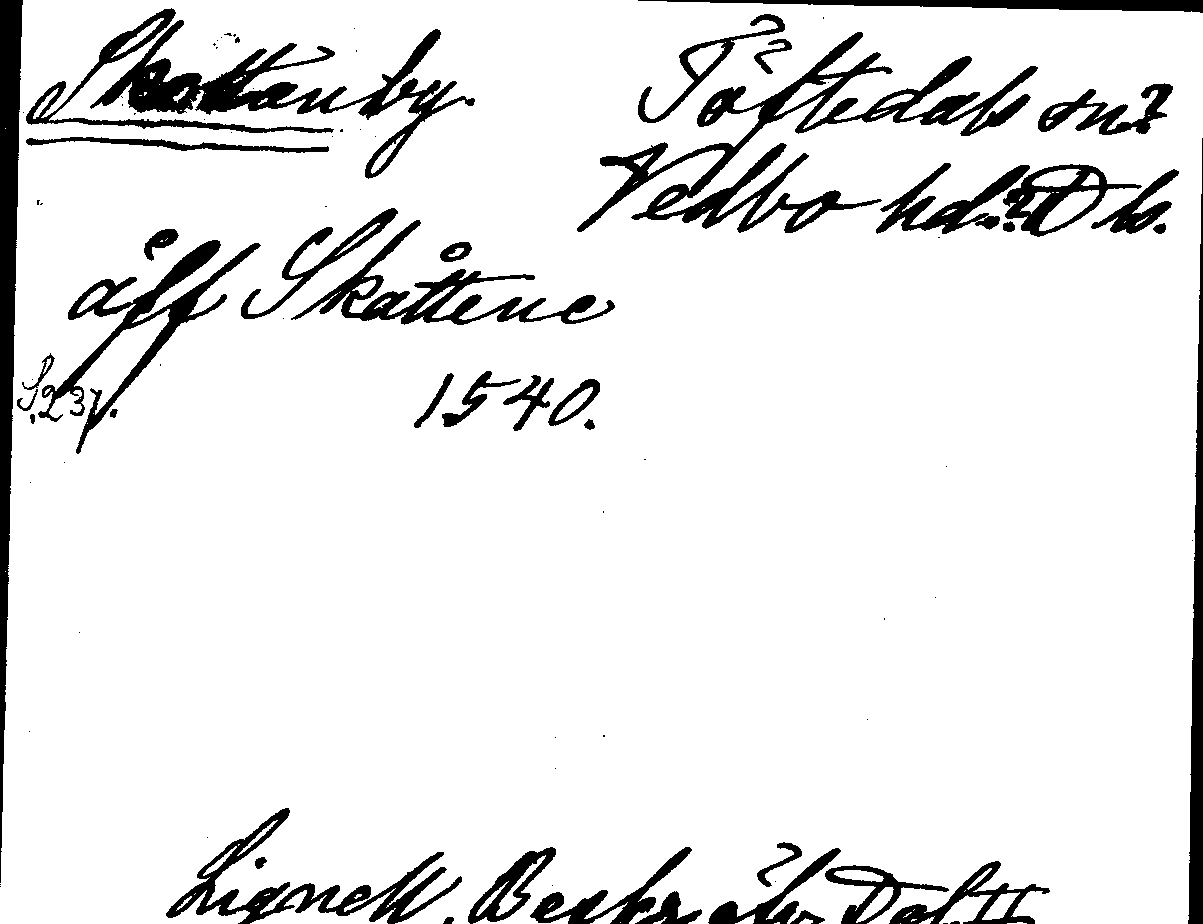 Skottan by. Töftedals sn?
Vedbo hd.? Ds.
åff Skåttene
S. 237. 1540.
Lignell, Beskr. öfv. Dal II